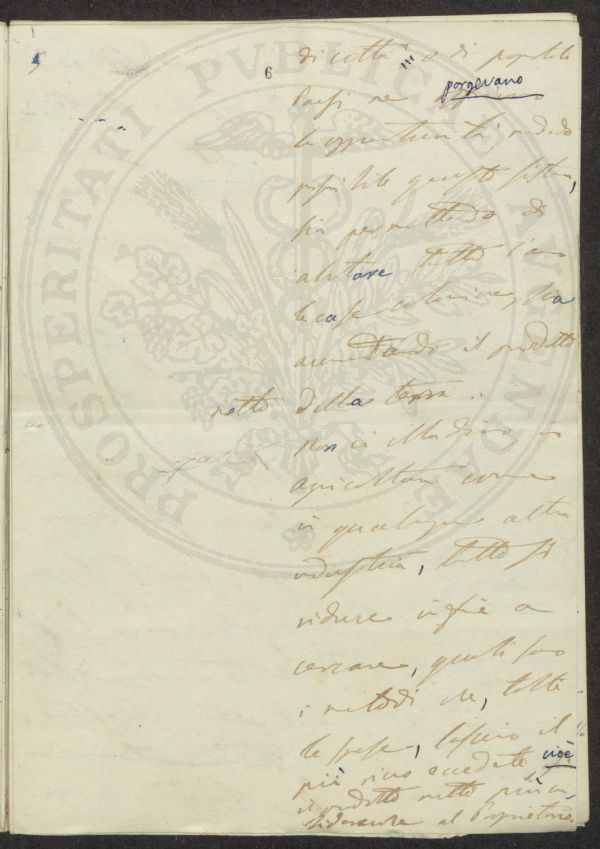 6
di città o di popolati
Paesi ne porgevano
le opportunità rendendo
possibile questo sistema,
sia permettendo di
alitare tutto l'anno
le case coloniche, sia
aumentando il prodotto
netto della terra.
Non ci illudiamo in
agricoltura come
in qualunque altra
industria, tutto si
riduce infine a
cercare, quali sono
i metodi che, tolte
le spese, lascino il
più ricco eccedente cioè
il prodotto netto più con
siderevole al Proprietario.
PROSPERITATI PUBLICAE AUGENDAE